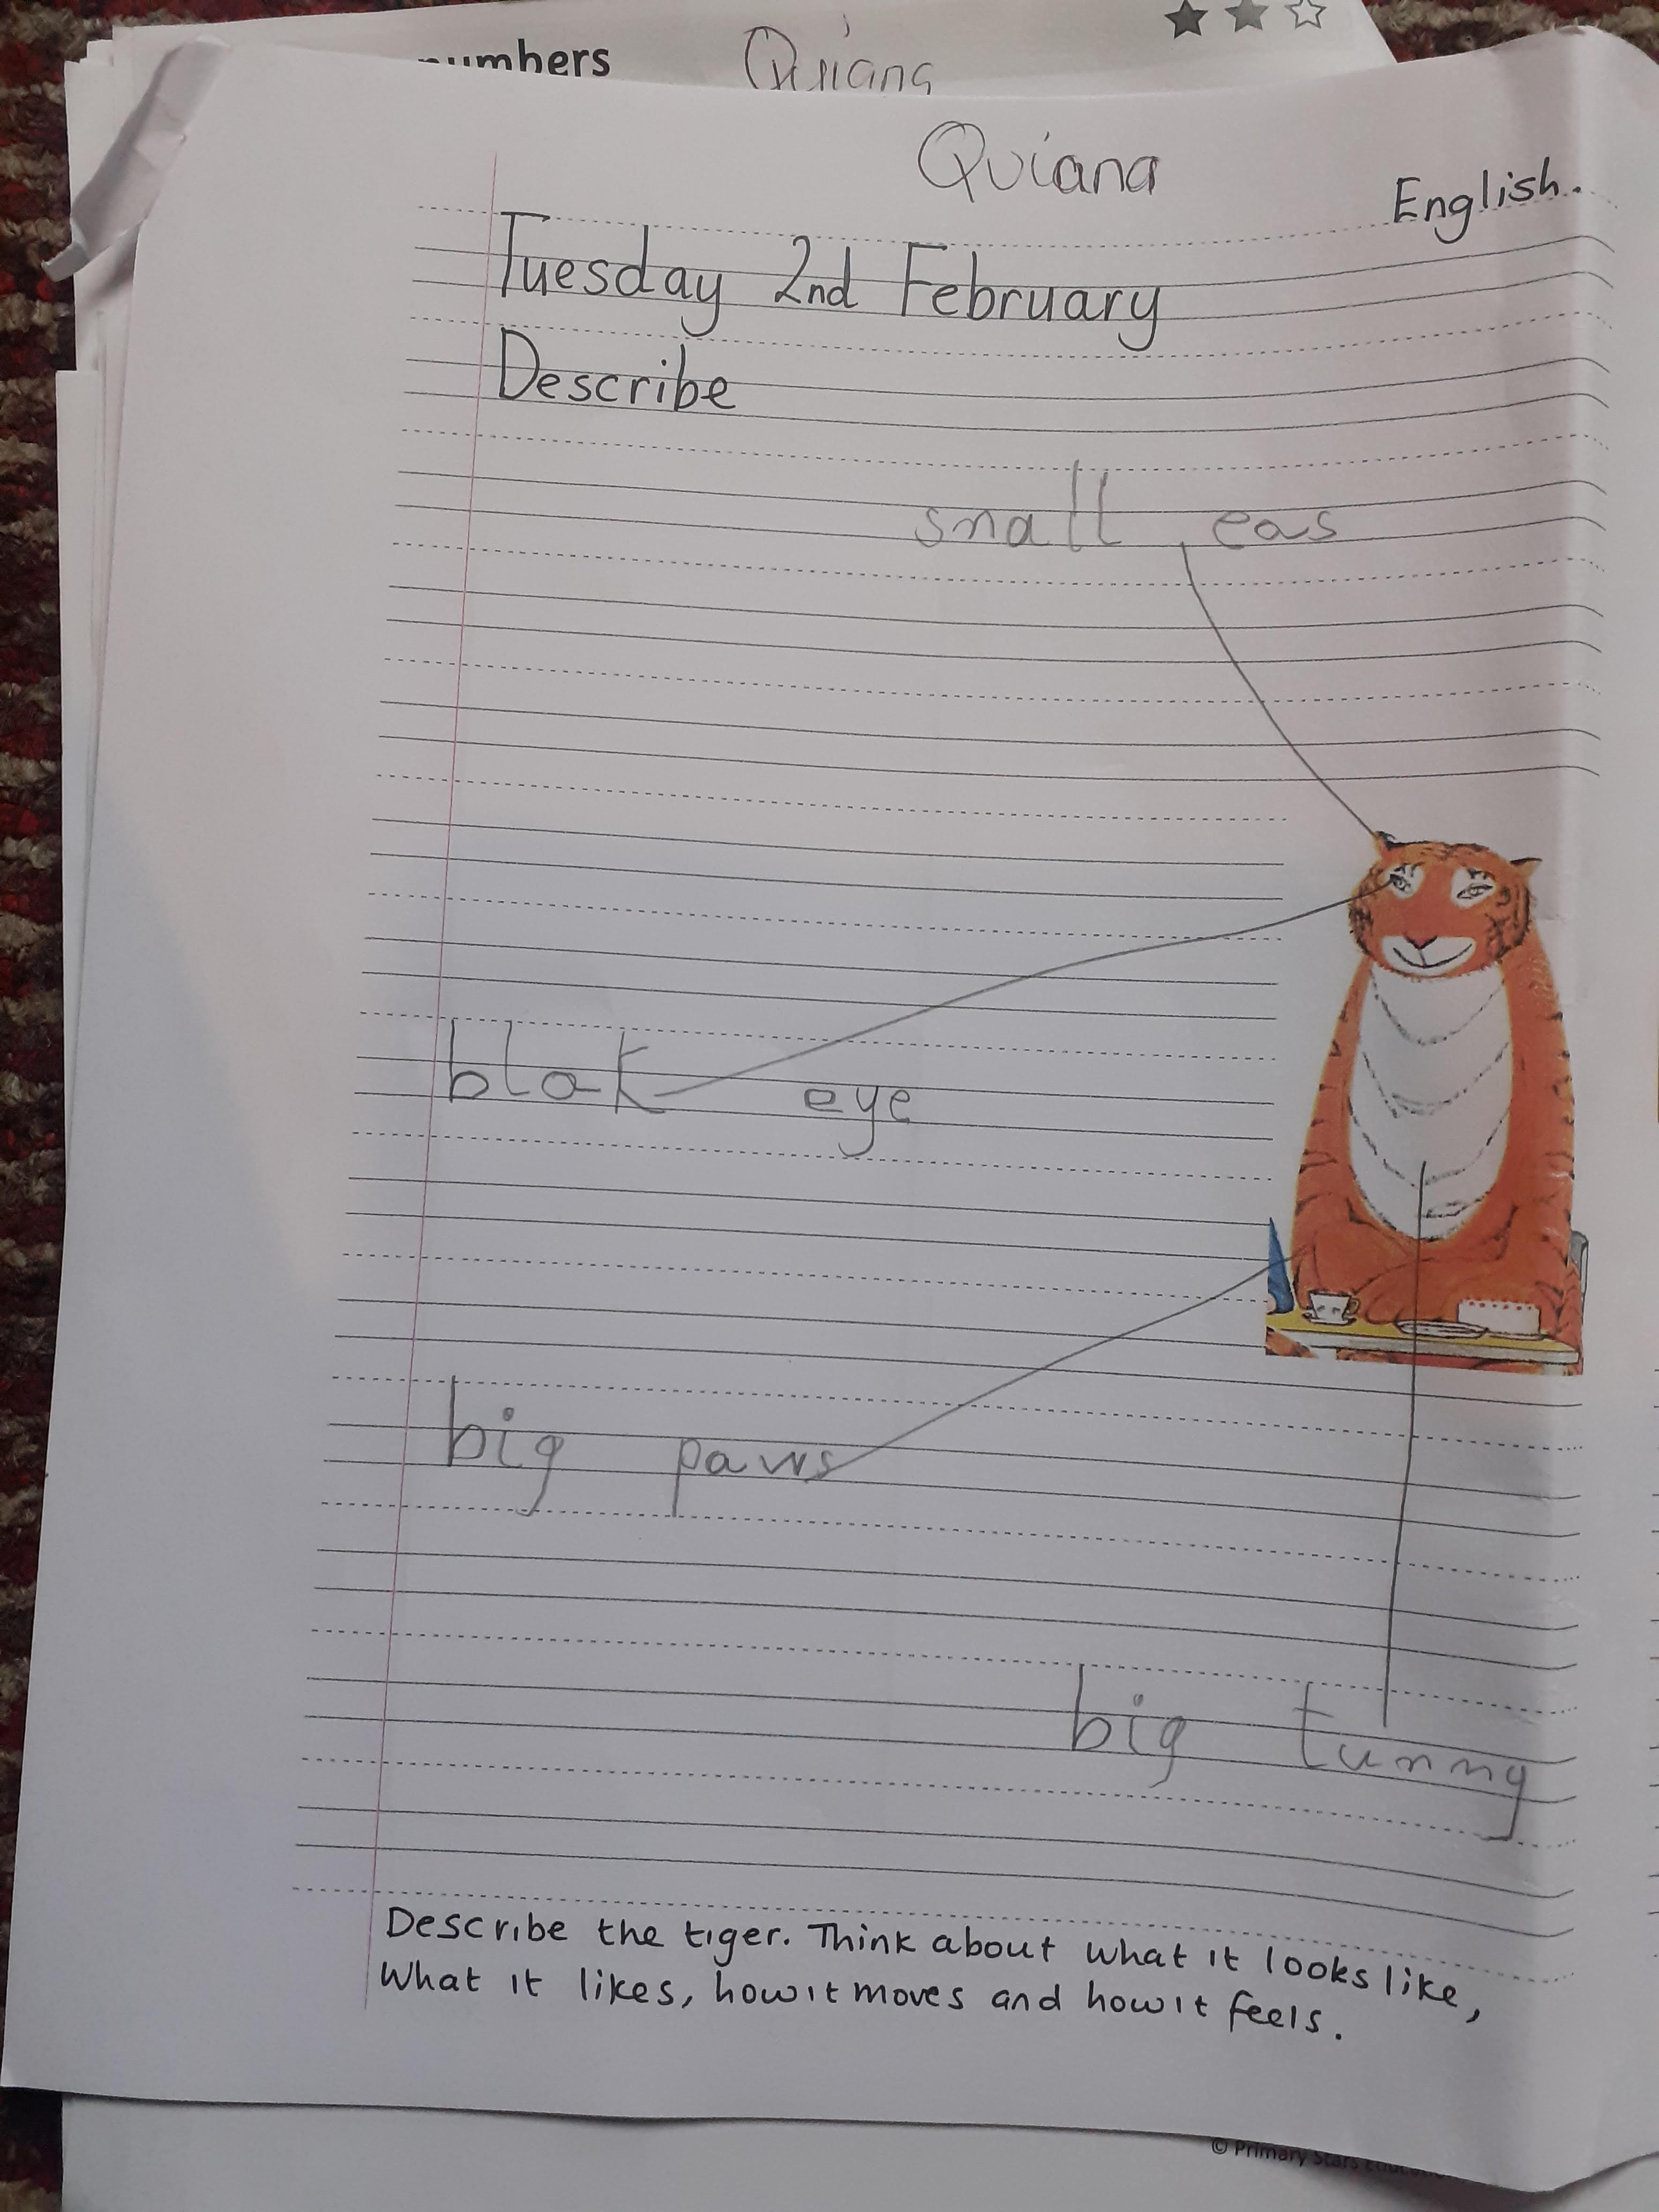 numbers
Quiana
Quiana
English.
Tuesday 2nd February
Describe
small eas
blak eye
big paws
big tunny
Describe the tiger. Think about what it looks like,
What it likes, how it moves and how it feels.
© Primary Stars